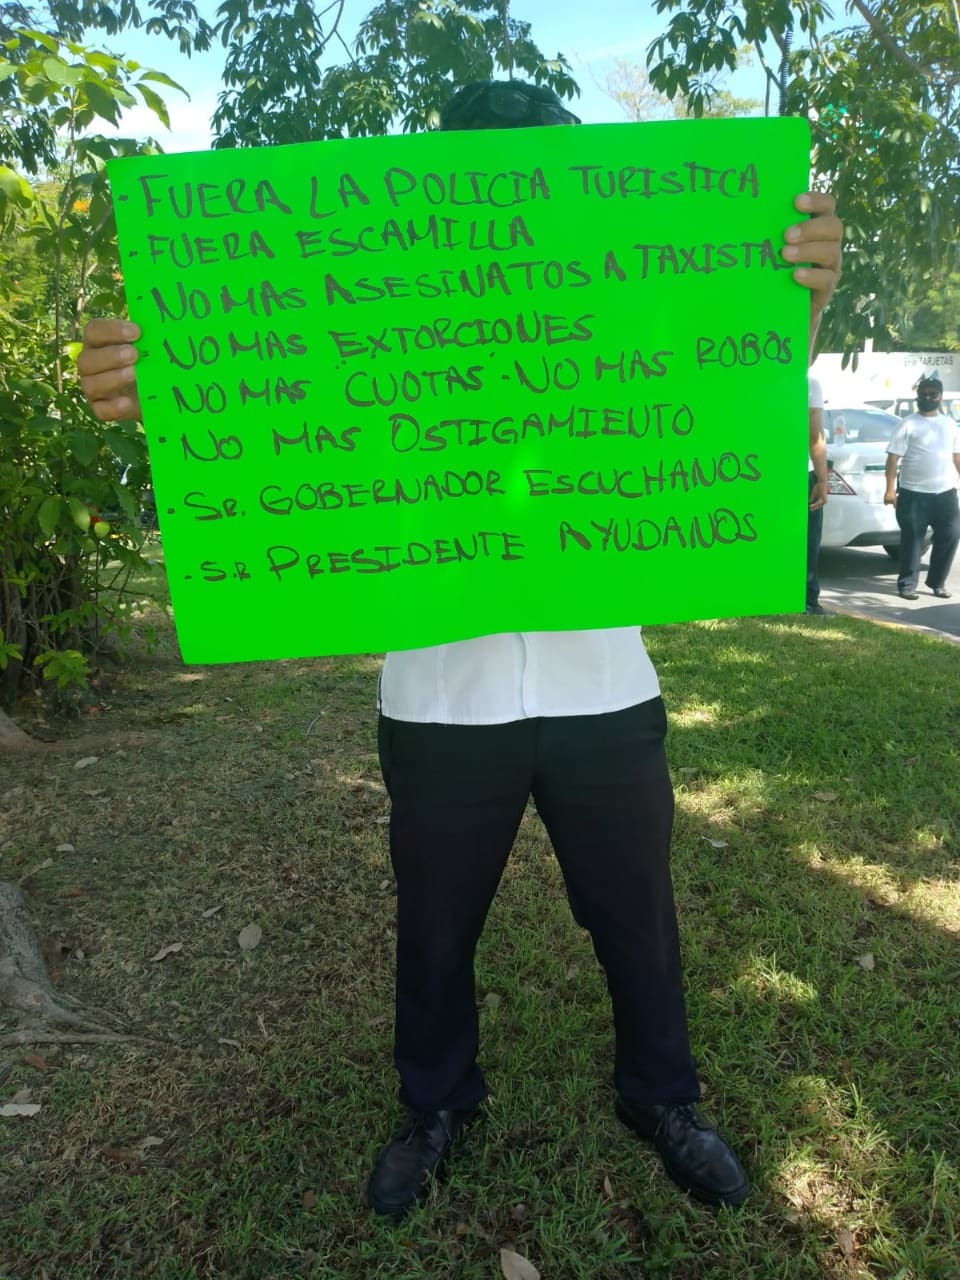 - FUERA LA POLICIA TURISTICA
- FUERA ESCAMILLA
- NO MAS ASESINATOS A TAXISTAS
- NO MAS EXTORCIONES
- NO MAS "CUOTAS" - NO MAS ROBOS
- NO MAS OSTIGAMIENTO
- SR. GOBERNADOR ESCUCHANOS
- S.R PRESIDENTE AYUDANOS
TARJETAS